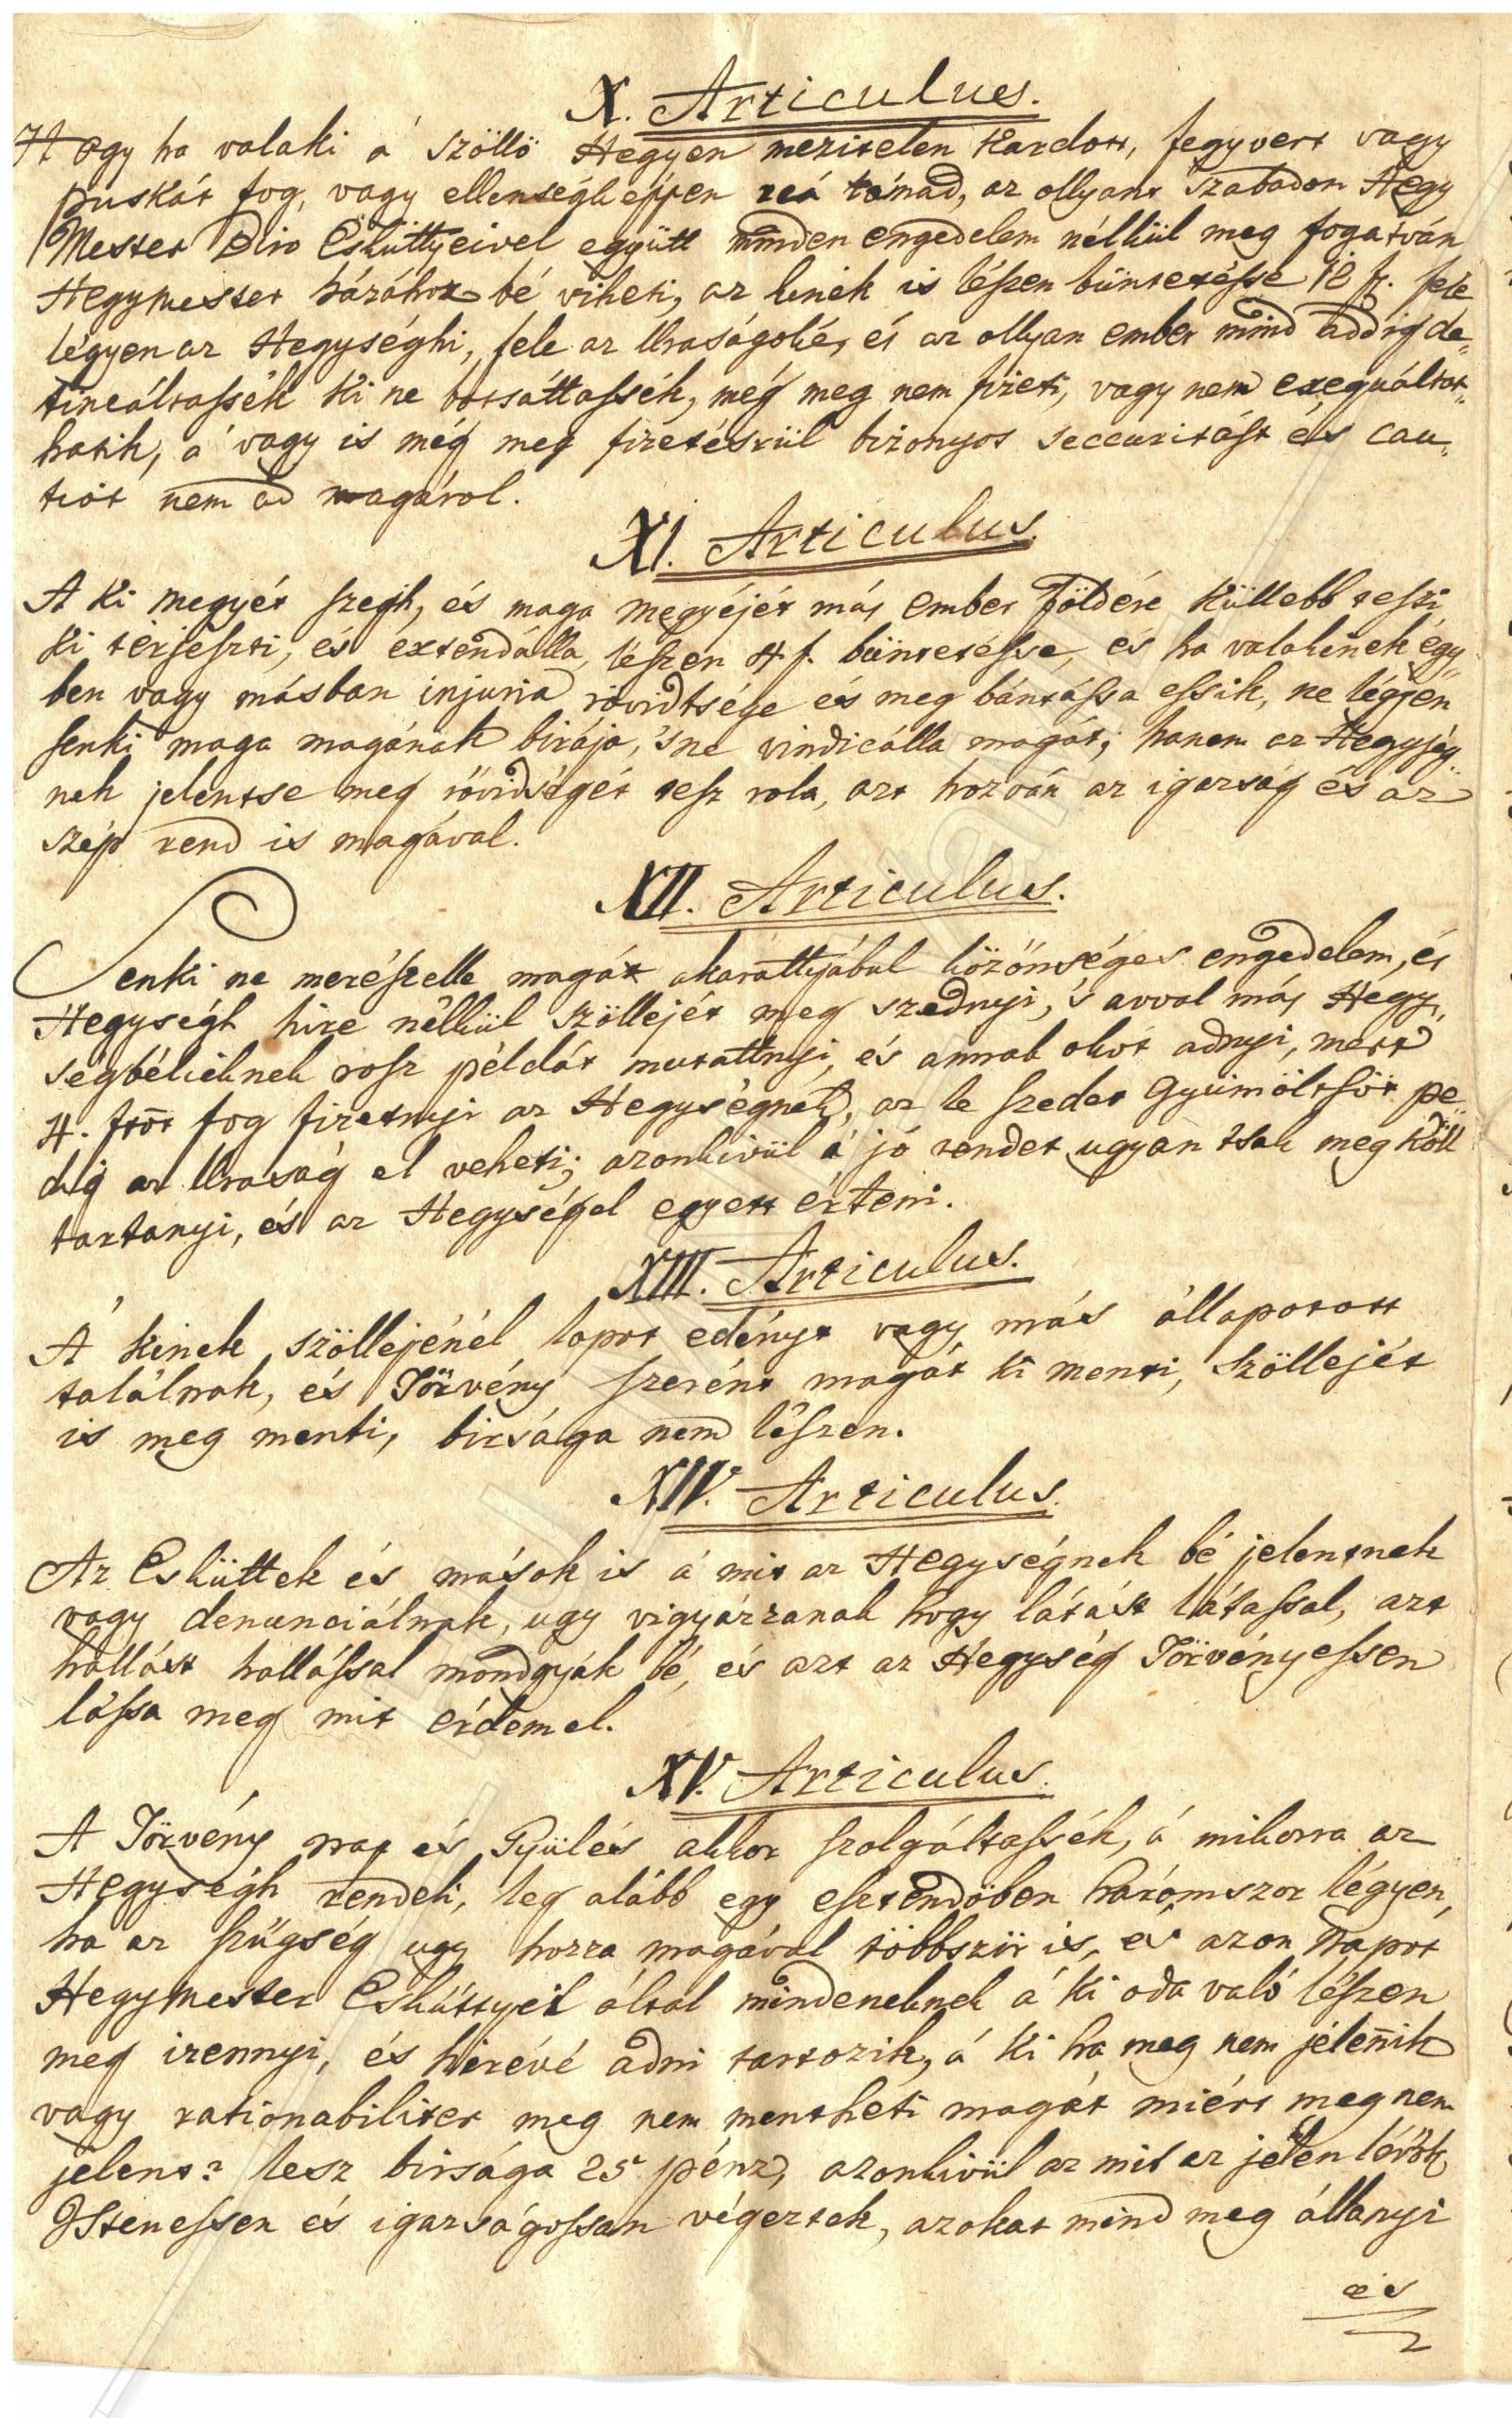 X. Articulus.
Hogy ha valaki á szöllö Hegyen mezitelen Kardott, fegyvert vagy
Puskát fog, vagy ellenségh eppen reá támad, az ollyant Szabadon Hegy
Mester Biro Esküttyeivel együtt minden engedelem nélkül meg fogatván
Hegymester házához bé viheti, az kinek is lészen büntetésse 12 f. fele
légyen az Hegységhi, fele az Uraságoké, és az ollyan ember mind addig de„
tineáltassék ki ne botsáttassék, még meg nem fizeti, vagy nem exequáltat„
hatik, á vagy is még meg fizetésrül bizonyos seccuritást és cau„
tiót nem ad magárol.
XI. Articulus.
A Ki megyét szegh, és maga megyéjét más ember földére küllebb teszi
ki terjeszti, és extendálla, lészen 4 f. büntetésse, és ha valakinek egy„
ben vagy másban injuria rövidtsége és meg bántássa essik, ne légyen
senki maga magának birája, 's ne vindicálla magát, hanem az Hegység„
nek jelentse meg rövidségét tesz rola, azt hozván az igazság és az
szép rend is magával.
XII. Articulus.
Senki ne merészelle magát akarattyábul közönséges engedelem, és
Hegységh hire nélkül szöllejét meg szednyi, 's avval más Hegy„
ségbélieknek rosz példát mutattnyi, és annak okot adnyi, mert
4. frōt fog fizetnyi az Hegységnek, az le szedet Gyümöltsöt pe„
dig az Uraság el veheti; azonkivül á jó rendet ugyan tsak meg köll
tartanyi, és az Hegységel egyett érteni.
XIII. Articulus.
A' kinek szöllejénél lopot edényt vagy más állapotott
találnak, és Törvény szerént magát ki menti, Szöllejét
is meg menti, birsága nem lészen.
XIV. Articulus.
Az Esküttek és mások is á mit az Hegységnek bé jelentnek
vagy denunciálnak, ugy vigyázzanak hogy látást látassal, azt
hallást hallással mondgyák bé, és azt az Hegység Törvényessen
lássa meg mit érdemel.
XV. Articulus.
A Törvény nap és Gyülés akkor szolgáltassék, á mikorra az
Hegységh rendeli, leg alább egy esztendöben háromszor légyen,
ha az szükség ugy hozza magával többszür is, és azon Napot
Hegymester Esküttyei által mindeneknek á ki oda való lészen
meg izennyi, és hirévé adni tartozik, á ki ha meg nem jelen̄ik
vagy rationabiliter meg nem mentheti magát miért meg nem
jelent? lesz birsága 25 pénz, azonkivül az mit az jelen lévök
Istenessen és igazságossan végeztek, azokat mind meg állanyi
és